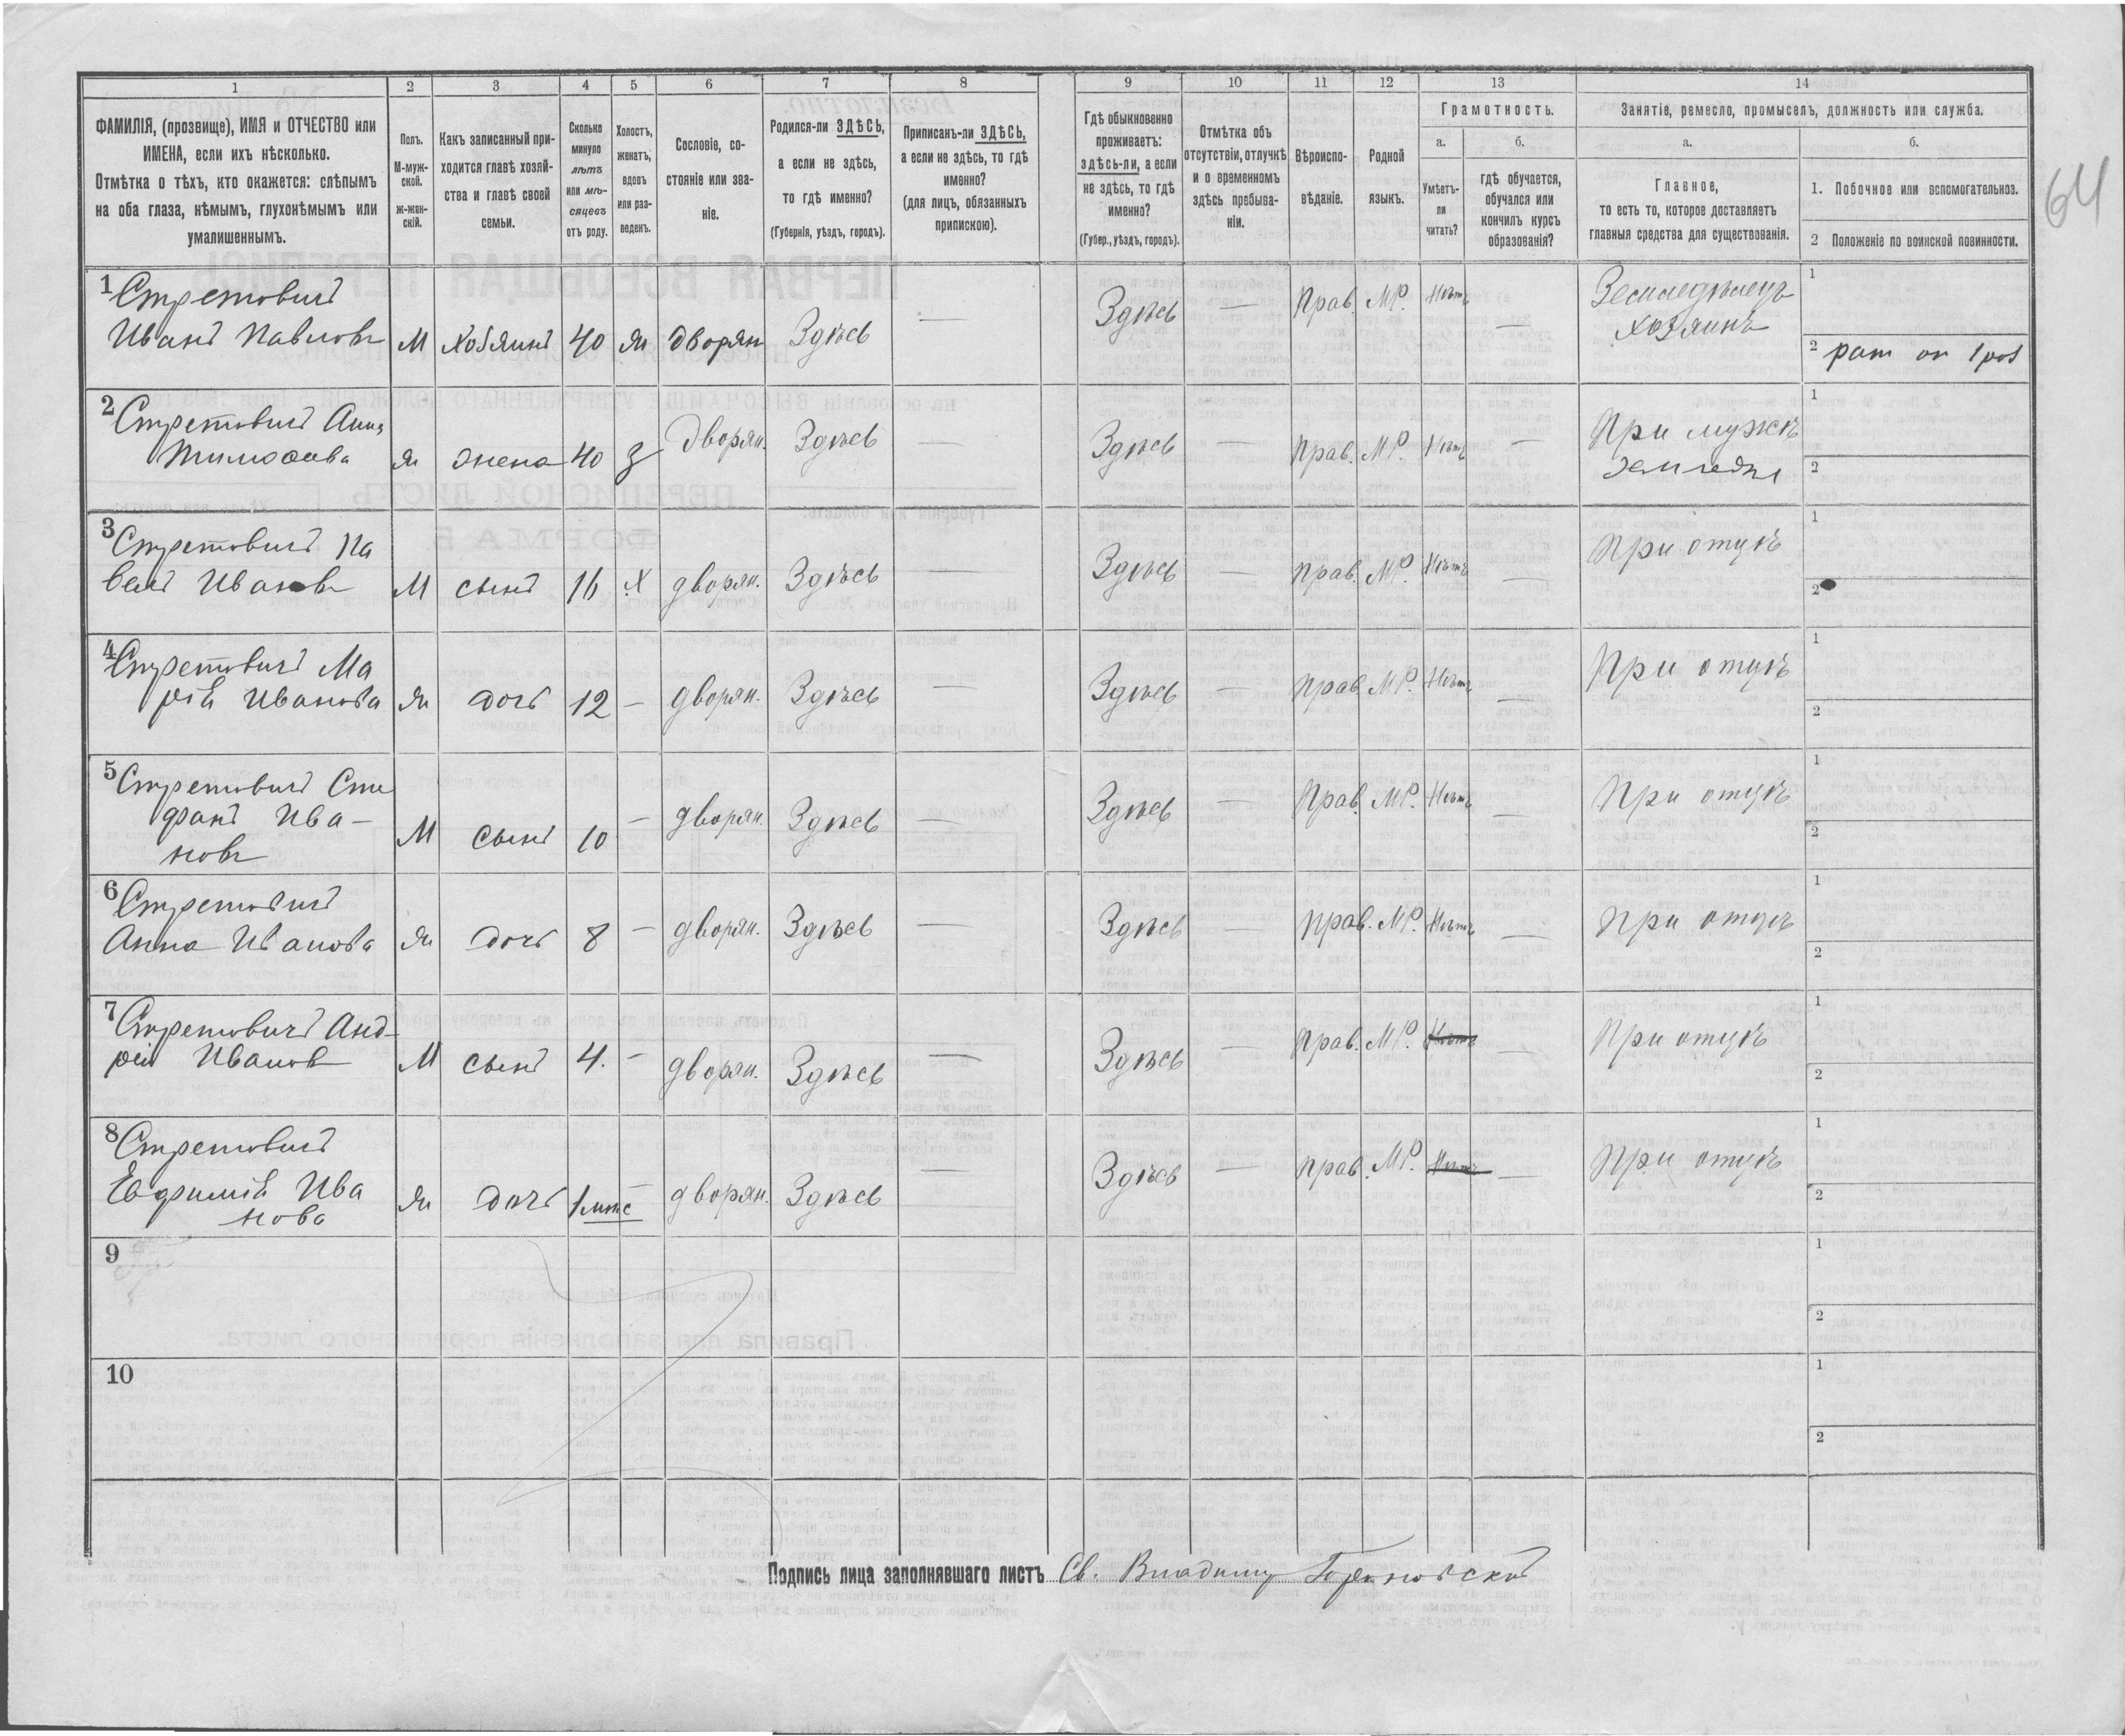 1 2 3 4 5 6 7 8 9 10 11 12 13 14
ФАМИЛІЯ, (прозвище), ИМЯ и ОТЧЕСТВО или
ИМЕНА, если ихъ нѣсколько.
Отмѣтка о тѣхъ, кто окажется: слѣпымъ
на оба глаза, нѣмымъ, глухонѣмымъ или
умалишеннымъ.
Полъ.
М-муж-
ской.
ж-жен-
скій.
Какъ записанный при-
ходится главѣ хозяй-
ства и главѣ своей
семьи.
Сколько
минуло
лѣтъ
или мѣ-
сяцевъ
отъ роду.
Холостъ,
женатъ,
вдовъ
или раз-
веденъ.
Сословіе, со-
стояніе или зва-
ніе.
Родился-ли ЗДѢСЬ,
а если не здѣсь,
то гдѣ именно?
(Губернія, уѣздъ, городъ).
Приписанъ-ли ЗДѢСЬ,
а если не здѣсь, то гдѣ
именно?
(для лицъ, обязанныхъ
припискою).
Гдѣ обыкновенно
проживаетъ:
здѣсь-ли, а если
не здѣсь, то гдѣ
именно?
(Губер., уѣздъ, городъ).
Отмѣтка объ
отсутствіи, отлучкѣ
и о временномъ
здѣсь пребыва-
ніи.
Вѣроиспо-
вѣданіе.
Родной
языкъ.
Грамотность.
а. б.
Умѣетъ-
ли
читать?
гдѣ обучается,
обучался или
кончилъ курсъ
образованія?
Занятіе, ремесло, промыселъ, должность или служба.
а. б.
Главное,
то есть то, которое доставляетъ
главныя средства для существованія.
1. Побочное или вспомогательноз.
2 Положеніе по воинской повинности.
64
1 Стретовичъ
Иванъ Павловъ М Хозяинъ 40 ж дворян Здѣсь — Здѣсь — Прав. МР. Нѣтъ — Земледѣлецъ
хозяинъ
1
2
2 Стретовичъ Анна
Тимофеева ж жена 40 з Дворян. Здѣсь — Здѣсь — Прав. МР. Нѣтъ — При мужѣ
1
2
3 Стретовичъ Па
велъ Ивановъ М сынъ 16 Х дворян. Здѣсь — Здѣсь — прав. МР. Нѣтъ — При отцѣ
1
2
4 Стретовичъ Ма
рія Иванова ж дочь 12 — дворян. Здѣсь — Здѣсь — прав. МР. Нѣтъ — При отцѣ
1
2
5 Стретовичъ Сте
фанъ Ива-
новъ М сынъ 10 — дворян. Здѣсь — Здѣсь — Прав. МР. Нѣтъ — При отцѣ
1
2
6 Стретовичъ
Анна Иванова ж дочь 8 — дворян. Здѣсь — Здѣсь — прав. МР. Нѣтъ — При отцѣ
1
2
7 Стретовичъ Анд-
рей Иванов М сынъ 4. — дворян. Здѣсь — Здѣсь — Прав. МР. Нѣтъ — При отцѣ
1
2
8 Стретовичъ
Евфимія Ива
нова ж дочь 1 мѣс — дворян. Здѣсь — Здѣсь — прав. МР. Нѣтъ — При отцѣ
1
2
9
1
2
10
1
2
Подпись лица заполнявшаго листъ Св. Владимир